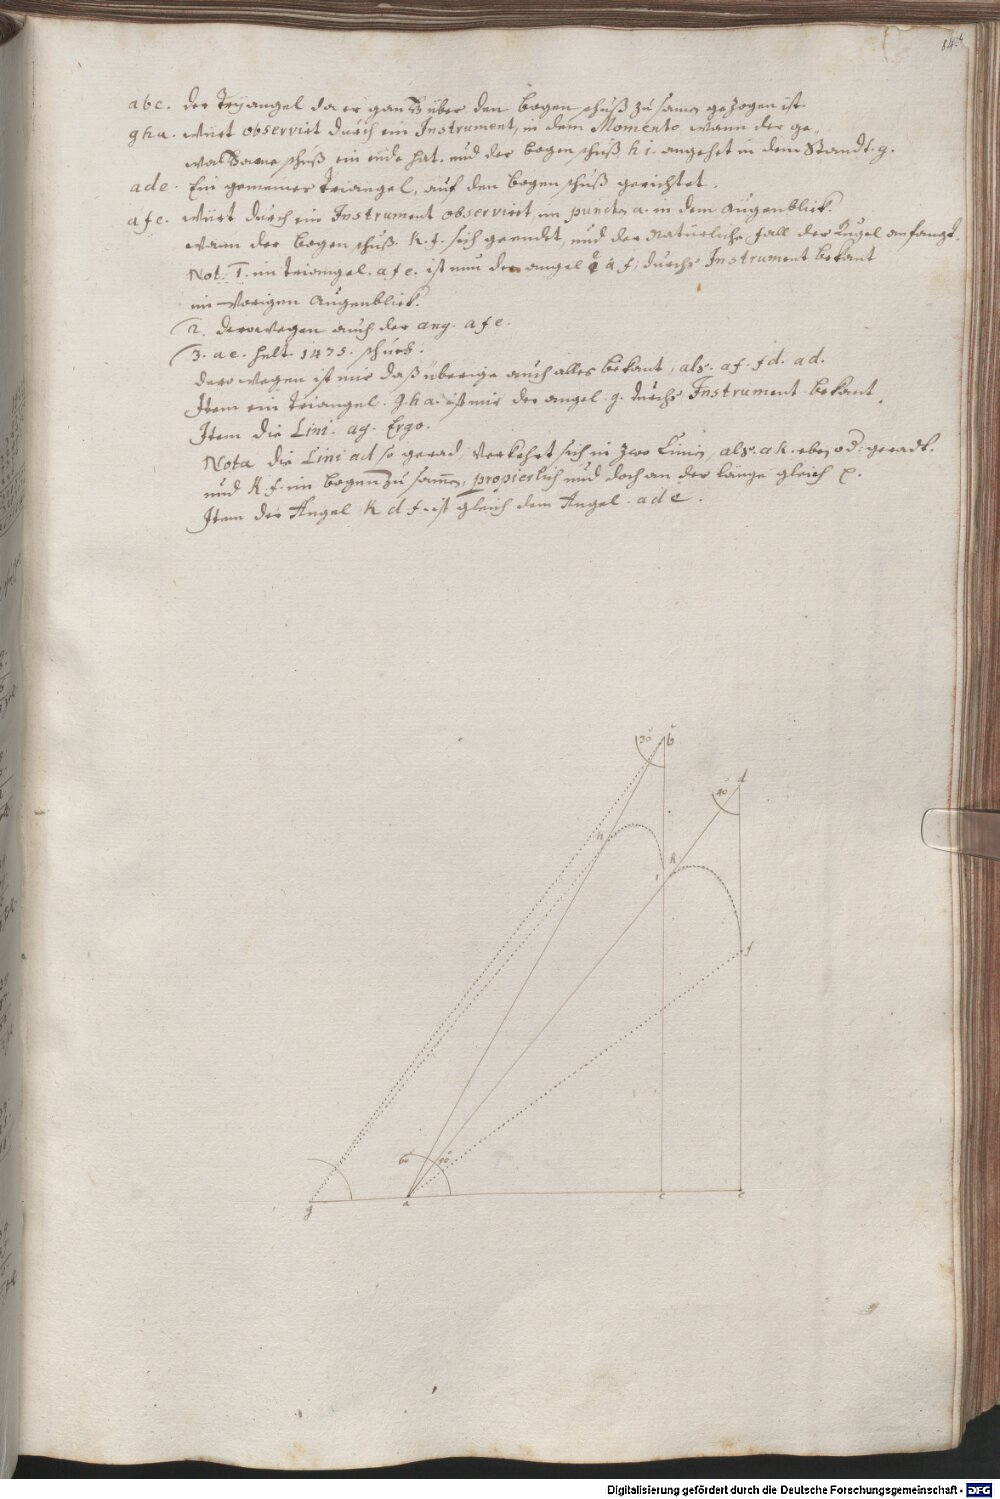 abc. der Tryangel da er gantz über den bogen schuß zu samen gezogen ist.
gha. würt observirt durch ein Instrument, in dem Momento, wann der ge-
waltsame schuß ein ende hat. und der bogen schuß h i. angehet in dem Standt. g.
ade. Ein gemeiner Triangel, auf den bogen schuß gerichtet.
afe. würt durch ein Instrument observirt, im puncto a. in dem augenblick.
wann der bogen schuß. k. f. sich geendet, und der Natürliche fall der Kugel anfangt.
Not. 1. im triangel. afe. ist nun der angel e a f: durchs Instrument bekant
im vorigen Augenblick.
2. derowegen auch der ang. afe.
3. ae. helt. 1475. schueh.
derowegen ist mir daß übrige auch alles bekant, als. af. fd. ad.
Item ein triangel. gha. ist mir der angel. g. durchs Instrument bekant.
Item die Lini. ag. Ergo.
Nota die Lini ad so gerad, verkehrt sich in zwo Linien, als. ak. eben od: geradt.
und kf. im bogen zu samen, propierlich und doch an der länge gleich
Item der Angel kdf. ist gleich dem Angel. ade.
30 b
d
h
k
i
f
60
g
a
c
e
Digitalisierung gefördert durch die Deutsche Forschungsgemeinschaft - DFG